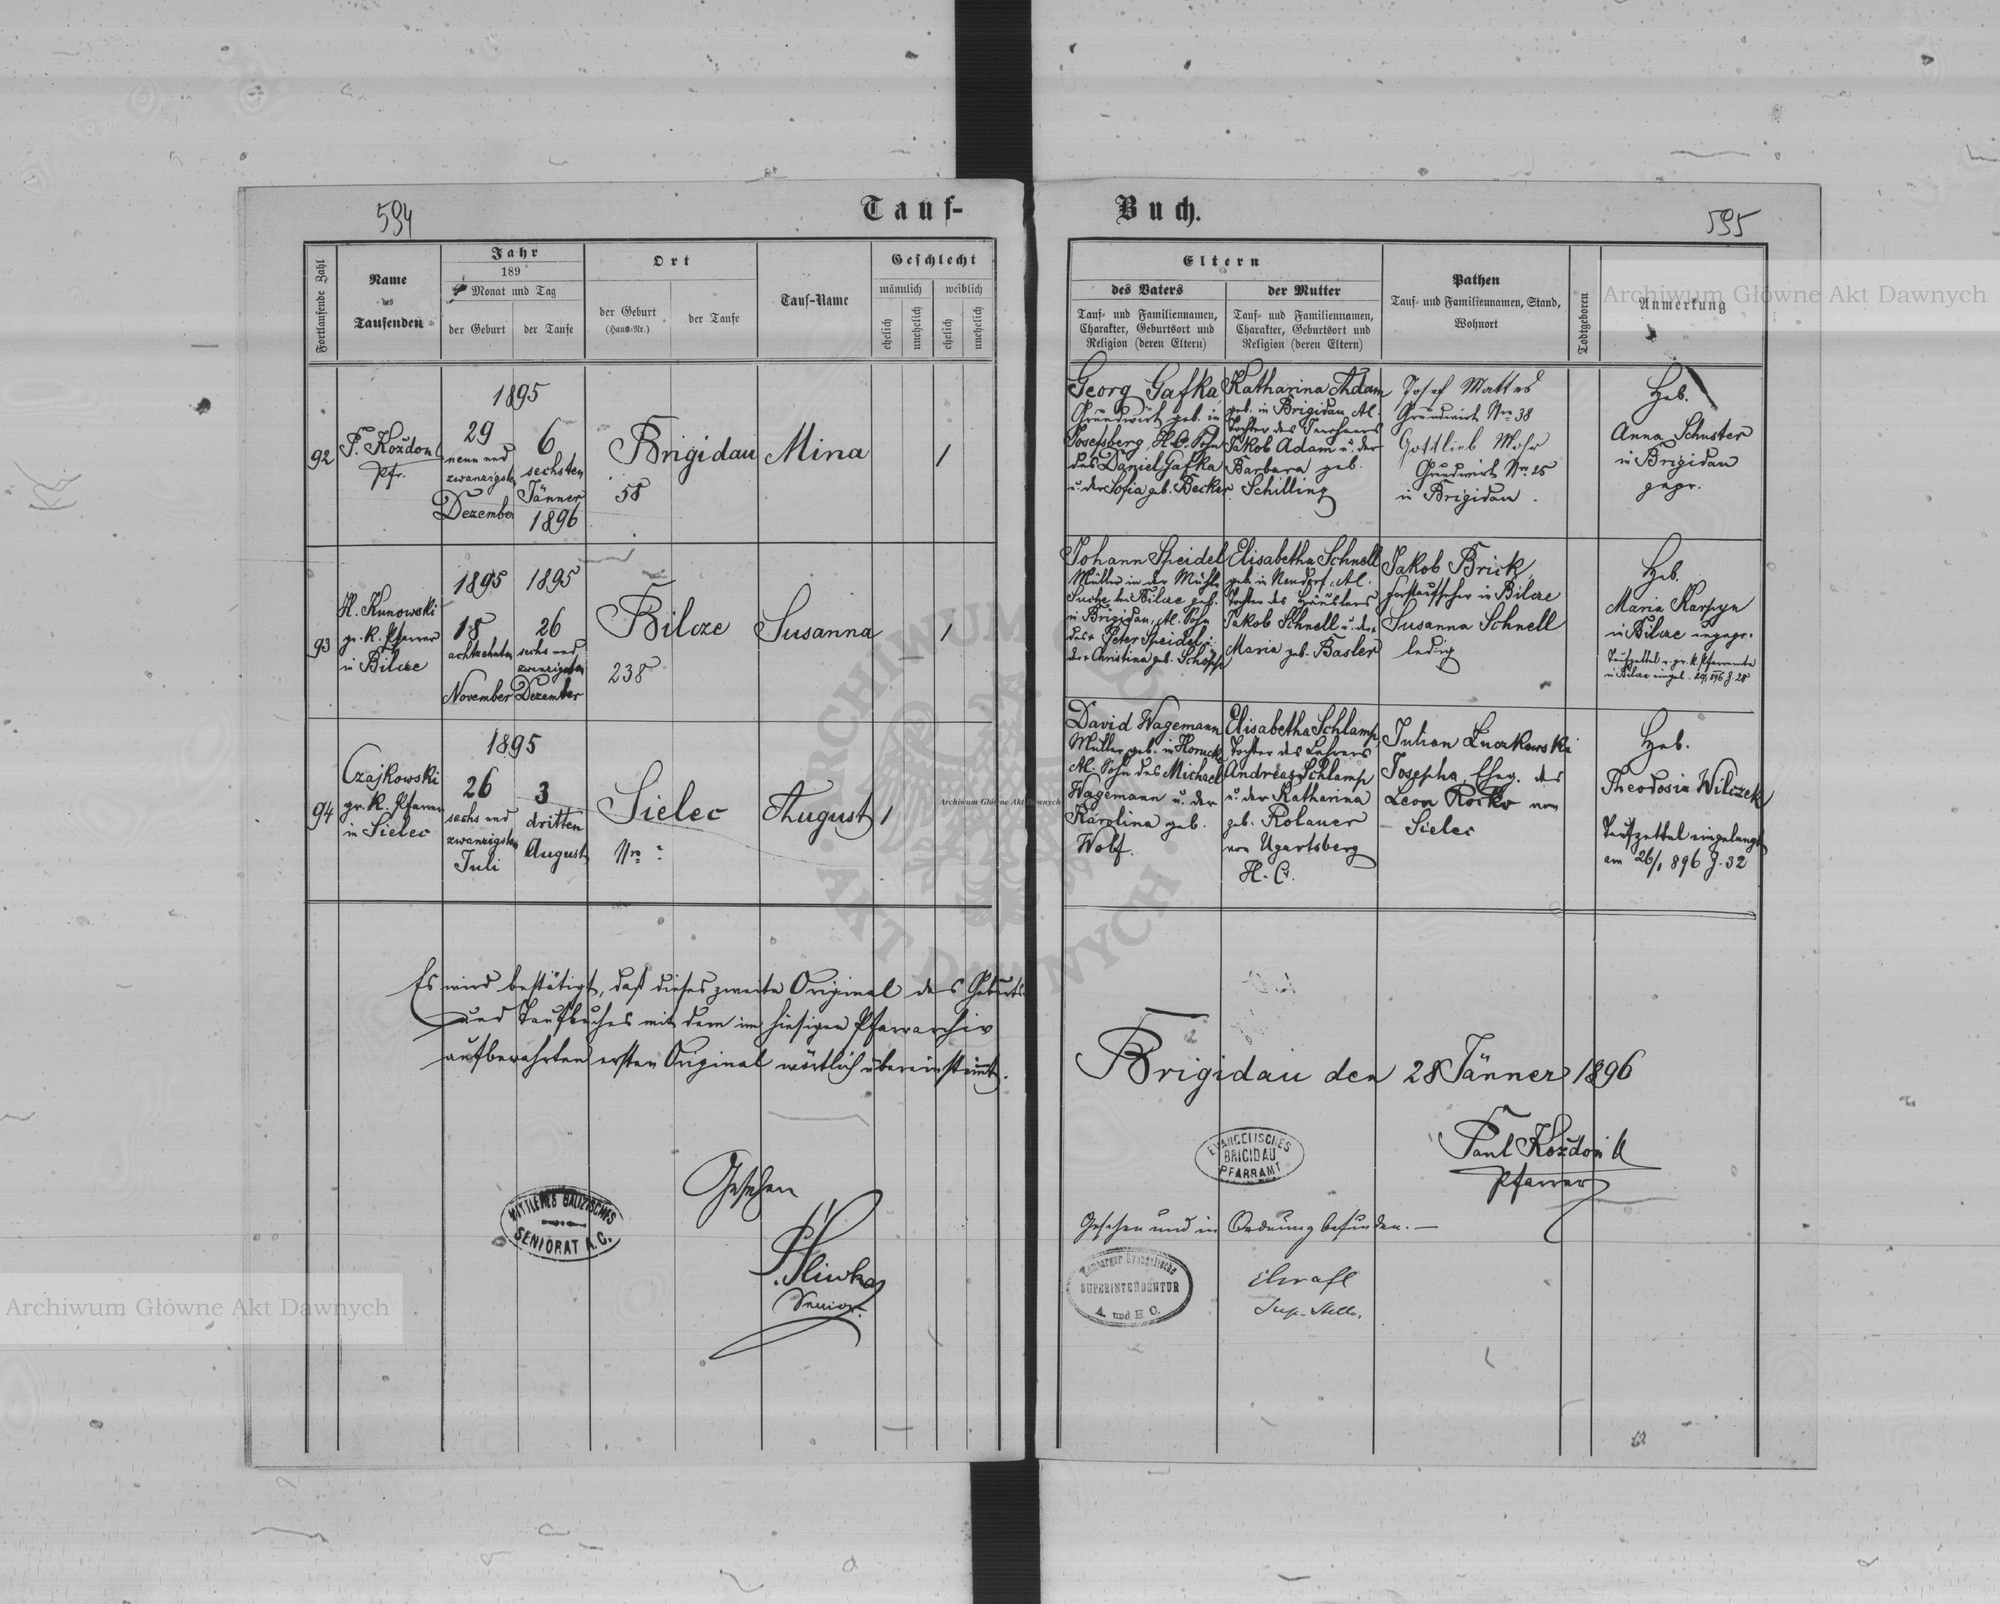 594
Tauf-
Buch.
595
Fortlaufende Zahl
Name
des
Taufenden
Jahr
189
Monat und Tag
der Geburt
der Taufe
Ort
der Geburt
(Haus-Nr.)
der Taufe
Tauf-Name
Geschlecht
männlich
weiblich
ehelich
unehelich
ehelich
unehelich
Eltern
des Vaters
Tauf- und Familiennamen,
Charakter, Geburtsort und
Religion (deren Eltern)
der Mutter
Tauf- und Familiennamen,
Charakter, Geburtsort und
Religion (deren Eltern)
Pathen
Tauf- und Familiennamen, Stand,
Wohnort
Todtgeboren
Anmerkung
92
P. Kożdoń
Pfr.
1895
29
neun und
zwanzigsten
Dezember
6
sechsten
Jänner
1896
Brigidau
58
Mina
1
Georg Gafka
Grundwirt geb. in
Josefsberg, H.C. Sohn
des Daniel Gafka
u. der Sofia geb. Becker
Katharina Adam
geb. in Brigidau, A.C.
Tochter des
Jakob Adam u. der
Barbara geb.
Schilling
Josef Mattes
Grundwirt Nro 38
Gottlieb Mohr
Grundwirt Nr. 25
in Brigidau.
Heb.
Anna Schuster
in Brigidau
gepr.
93
H. Kunowski
gr. k. Pfarrer
in Bilcze
1895
18
achtzehnten
November
1895
26
sechs und
zwanzigsten
Dezember
Bilcze
238
Susanna
1
Johann Speidel
Müller in der Mühle
bei Bilcze geb.
in Brigidau, A.C. Sohn
des + Peter Speidel u.
der + Christina geb. Schöpp
Elisabetha Schnell
geb. in Neudorf, A.C.
Tochter des Häuslers
Jakob Schnell u. der
Maria geb. Basler
Jakob Brick
Forstaufseher in Bilcze
Susanna Schnell
ledig
Heb.
Maria Karpyn
in Bilcze ungepr.
Taufzettel v. gr. k. Pfarramte
in Bilcze eingel. 896 Z. 28
94
Czajkowski
gr. k. Pfarrer
in Sielec
1895
26
sechs und
zwanzigsten
Juli
3
dritten
August
Sielec
Nro ?
August
1
David Wagemann
Müller geb. in Horucko
A.C. Sohn des Michael
Wagemann u. der
Karolina geb.
Wolf.
Elisabetha Schlamp,
Tochter des Lehrers
Andreas Schlamp
u. der Katharina
geb. Rolauer
von Ugartsberg
H. C.
Julian Luczkowski
Josepha, Eheg. des
Leon Rocko von
Sielec
Heb.
Theodosia Wilczek
Taufzettel eingelangt
am 26/1 896 Z. 32
Es wird bestätigt, daß dieses zweite Original des Geburts-
und Taufbuches mit dem im hiesigen Pfarrarchiv
aufbewahrten ersten Original wörtlich übereinstimmt.
Brigidau den 28 Jänner 1896
Paul Kożdoń
Pfarrer
EVANGELISCHES
BRIGIDAU
PFARRAMT
Gesehen
MITTLERES GALIZISCHES
SENIORAT A. C.
Senior
Gesehen und in Ordnung befunden. —
Lemberger Evangelische
SUPERINTENDENTUR
A. und H. C.
Sup. Stellv.
Archiwum Główne Akt Dawnych
Archiwum Główne Akt Dawnych
Archiwum Główne Akt Dawnych
ARCHIWUM GŁÓWNE
AKT DAWNYCH